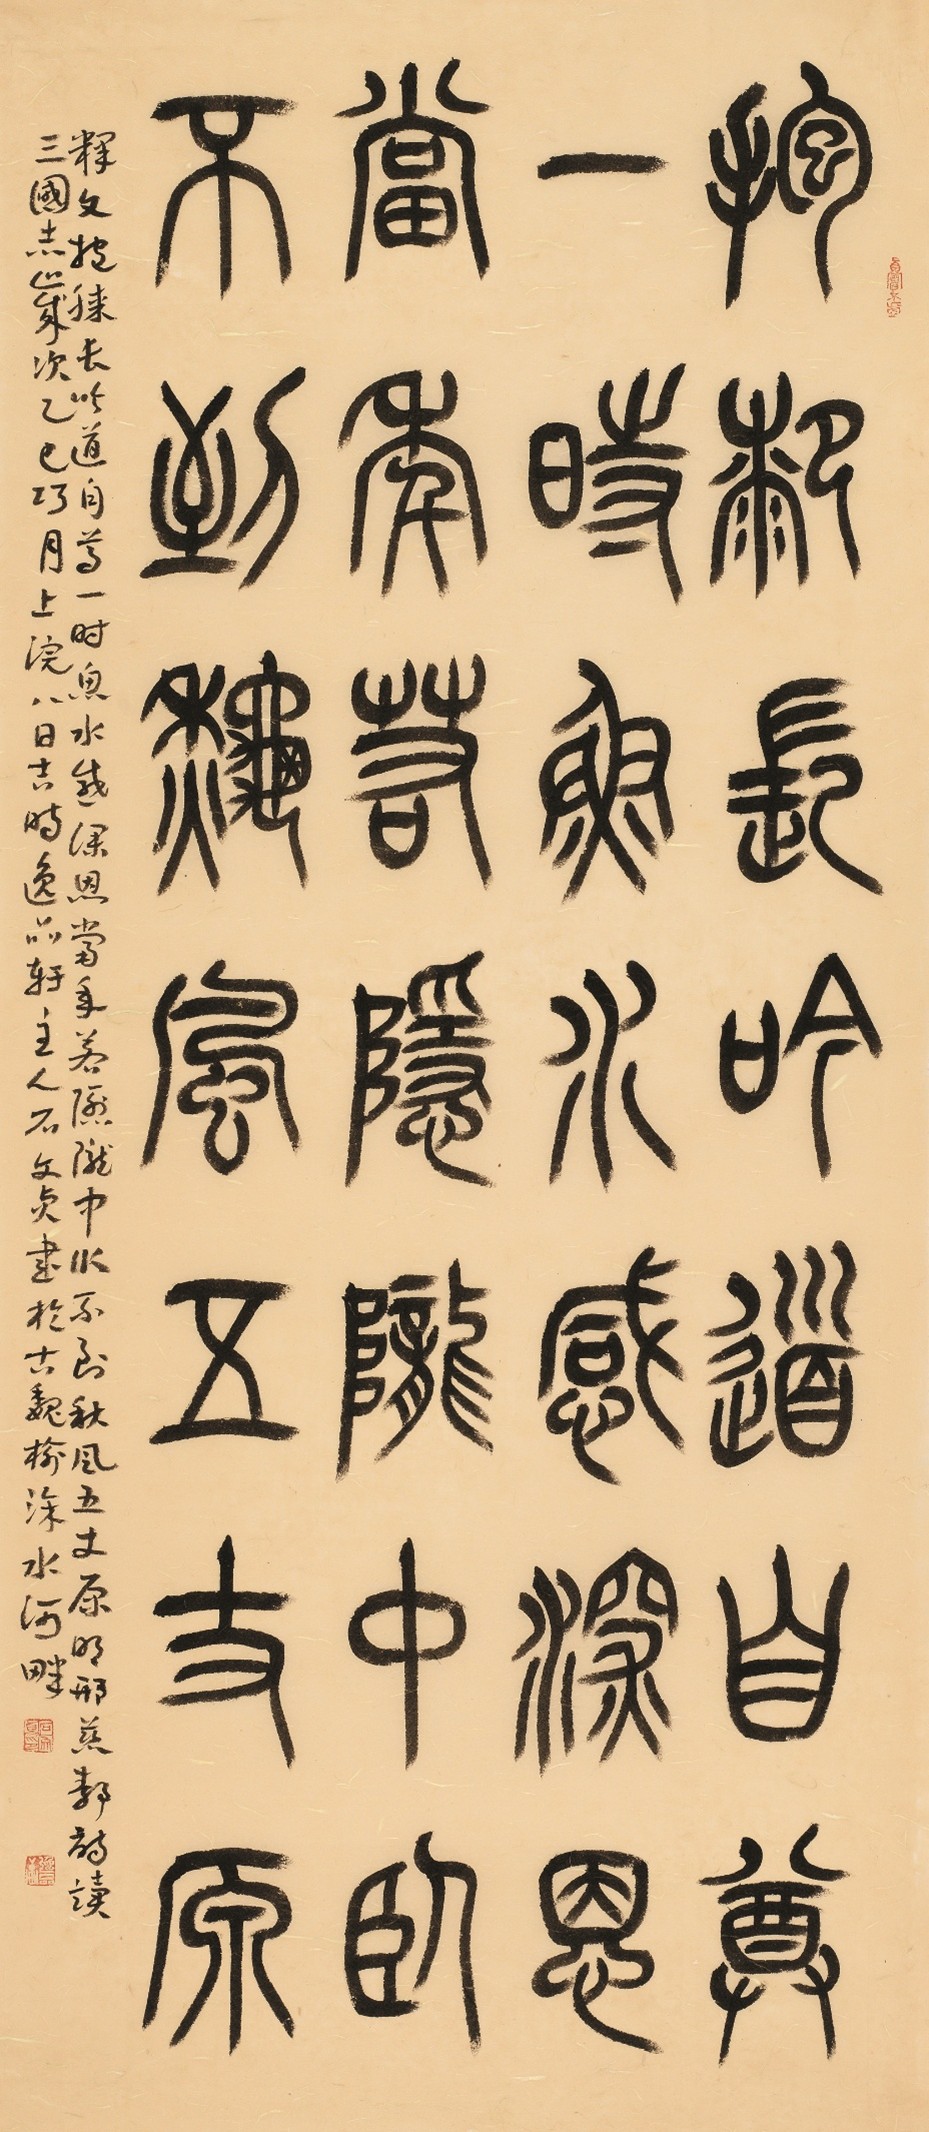 抱膝長吟道自尊
一時魚水感深恩
當年若隱隴中臥
不到龝風五丈原
釋文抱膝長吟道自尊一时魚水感深恩當年若隱隴中臥不到秋風五丈原明邢慈静詩讀
三國志歲次乙巳巧月上浣八日吉時逸品軒主人石文貞書於古魏榆涂水河畔